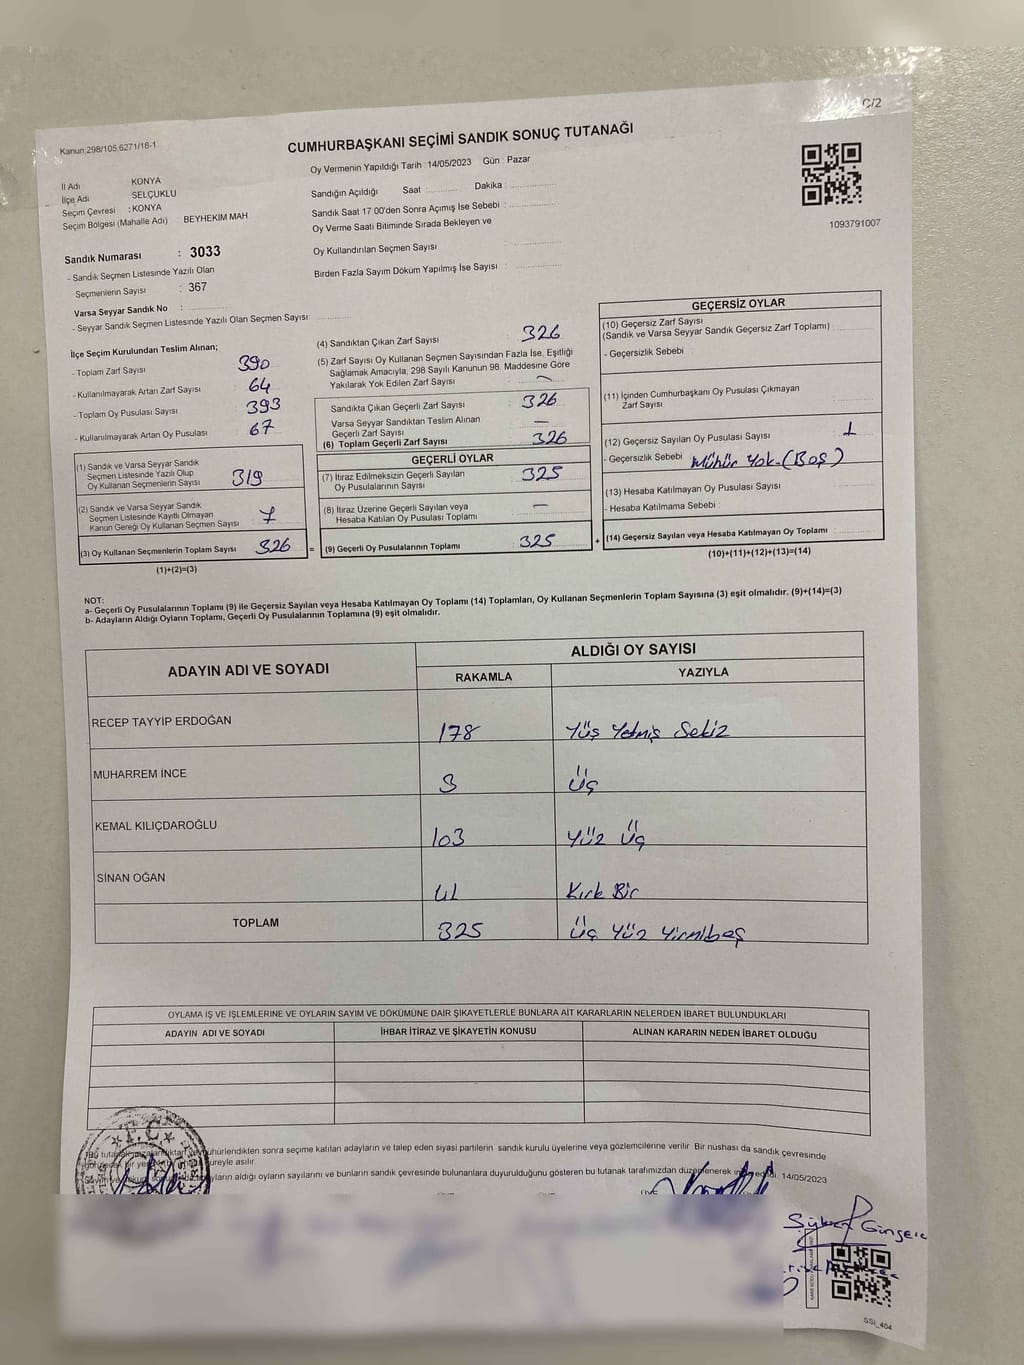 C/2
Kanun:298/105,6271/16-1
CUMHURBAŞKANI SEÇİMİ SANDIK SONUÇ TUTANAĞI
İl Adı : KONYA
İlçe Adı : SELÇUKLU
Seçim Çevresi : KONYA
Seçim Bölgesi (Mahalle Adı) BEYHEKİM MAH
Sandık Numarası : 3033
- Sandık Seçmen Listesinde Yazılı Olan
Seçmenlerin Sayısı : 367
Varsa Seyyar Sandık No :
- Seyyar Sandık Seçmen Listesinde Yazılı Olan Seçmen Sayısı
Oy Vermenin Yapıldığı Tarih : 14/05/2023 Gün : Pazar
Sandığın Açıldığı Saat : Dakika :
Sandık Saat 17:00'den Sonra Açımış İse Sebebi :
Oy Verme Saati Bitiminde Sırada Bekleyen ve
Oy Kullandırılan Seçmen Sayısı :
Birden Fazla Sayım Döküm Yapılmış İse Sayısı :
1093791007
İlçe Seçim Kurulundan Teslim Alınan;
- Toplam Zarf Sayısı : 390
- Kullanılmayarak Artan Zarf Sayısı : 64
- Toplam Oy Pusulası Sayısı : 393
- Kullanılmayarak Artan Oy Pusulası : 67
(1) Sandık ve Varsa Seyyar Sandık
Seçmen Listesinde Yazılı Olup
Oy Kullanan Seçmenlerin Sayısı : 319
(2) Sandık ve Varsa Seyyar Sandık
Seçmen Listesinde Kayıtlı Olmayan
Kanun Gereği Oy Kullanan Seçmen Sayısı : 7
(3) Oy Kullanan Seçmenlerin Toplam Sayısı : 326
(1)+(2)=(3)
(4) Sandıktan Çıkan Zarf Sayısı : 326
(5) Zarf Sayısı Oy Kullanan Seçmen Sayısından Fazla İse, Eşitliği
Sağlamak Amacıyla; 298 Sayılı Kanunun 98. Maddesine Göre
Yakılarak Yok Edilen Zarf Sayısı : -
Sandıkta Çıkan Geçerli Zarf Sayısı : 326
Varsa Seyyar Sandıktan Teslim Alınan
Geçerli Zarf Sayısı : -
(6) Toplam Geçerli Zarf Sayısı : 326
GEÇERLİ OYLAR
(7) İtiraz Edilmeksizin Geçerli Sayılan
Oy Pusulalarının Sayısı : 325
(8) İtiraz Üzerine Geçerli Sayılan veya
Hesaba Katılan Oy Pusulası Toplamı : -
= (9) Geçerli Oy Pusulalarının Toplamı : 325
GEÇERSİZ OYLAR
(10) Geçersiz Zarf Sayısı
(Sandık ve Varsa Seyyar Sandık Geçersiz Zarf Toplamı)
- Geçersizlik Sebebi :
(11) İçinden Cumhurbaşkanı Oy Pusulası Çıkmayan
Zarf Sayısı :
(12) Geçersiz Sayılan Oy Pusulası Sayısı : 1
- Geçersizlik Sebebi : Mühür Yok-(Boş)
(13) Hesaba Katılmayan Oy Pusulası Sayısı :
- Hesaba Katılmama Sebebi :
+ (14) Geçersiz Sayılan veya Hesaba Katılmayan Oy Toplamı :
(10)+(11)+(12)+(13)=(14)
NOT:
a- Geçerli Oy Pusulalarının Toplamı (9) ile Geçersiz Sayılan veya Hesaba Katılmayan Oy Toplamı (14) Toplamları, Oy Kullanan Seçmenlerin Toplam Sayısına (3) eşit olmalıdır. (9)+(14)=(3)
b- Adayların Aldığı Oyların Toplamı, Geçerli Oy Pusulalarının Toplamına (9) eşit olmalıdır.
ADAYIN ADI VE SOYADI
ALDIĞI OY SAYISI
RAKAMLA YAZIYLA
RECEP TAYYİP ERDOĞAN 178 Yüş Yetmiş Sekiz
MUHARREM İNCE 3 Üç
KEMAL KILIÇDAROĞLU 103 Yüz Üç
SİNAN OĞAN 41 Kırk Bir
TOPLAM 325 Üç Yüz Yirmibeş
OYLAMA İŞ VE İŞLEMLERİNE VE OYLARIN SAYIM VE DÖKÜMÜNE DAİR ŞİKAYETLERLE BUNLARA AİT KARARLARIN NELERDEN İBARET BULUNDUKLARI
ADAYIN ADI VE SOYADI İHBAR İTİRAZ VE ŞİKAYETİN KONUSU ALINAN KARARIN NEDEN İBARET OLDUĞU
T.C.
sonra seçime katılan adayların ve talep eden siyasi partilerin sandık kurulu üyelerine veya gözlemcilerine verilir. Bir nushası da sandık çevresinde
asılır.
aldığı oyların sayılarını ve bunların sandık çevresinde bulunanlara duyurulduğunu gösteren bu tutanak tarafımızdan 14/05/2023
SSI_404